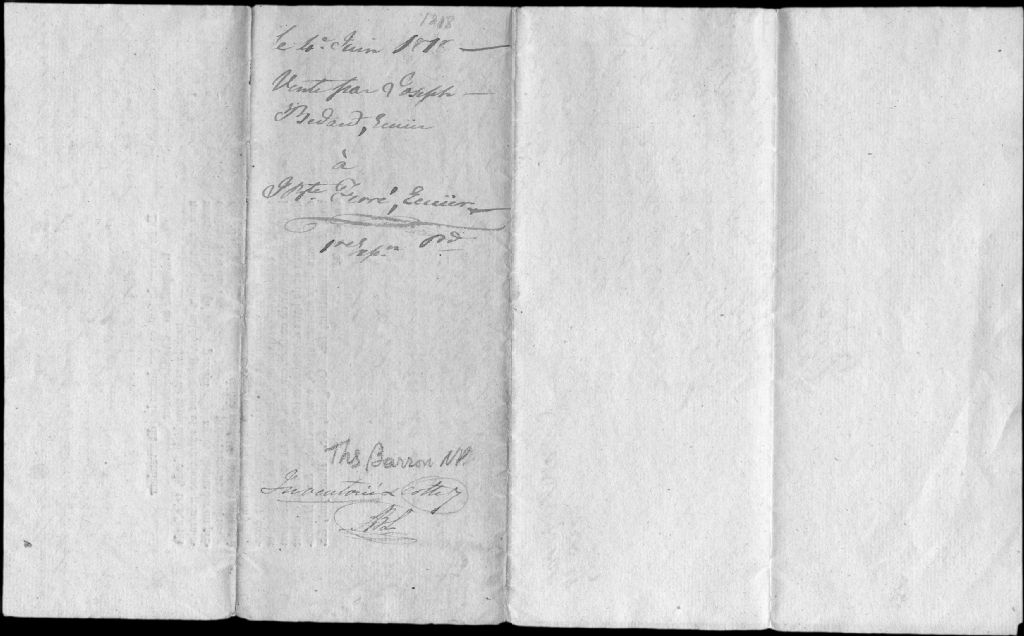 1818
le 4e. Juin 1818 —
Vente par Joseph —
Bedard, Ecuier
à
J Bte. Ferré, Ecuier
1re Expn
Ths Barron NP.
Inventorié & Cotté 7